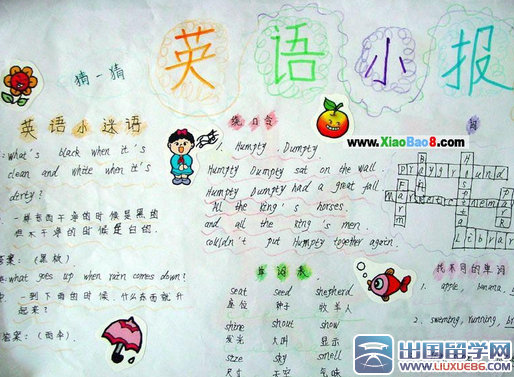 英语小报
猜一猜
英语小迷语
what's black when it's
clean and white when it's
dirty?
一样东西干净的时候是黑的
但不干净的时候是白的
答案：（黑板）
what goes up when rain comes down?
一到下雨的时候，什么东西就升
起来？
答案：（雨伞）
绕口令
1. Humpty . Dumpty.
Humpty Dumpty sat on the wall
Humpty Dumpty had a great fall.
All the king's horses.
and all the king's men.
couldn't put Humpty together again.
www.XiaoBao8.com
playground
Farm
market
Hospital
Librar
单词表
seat seed shepherd
座位 种子 牧羊人
shine shout show
发光 大叫 显示
size sky smell
尺寸 天空 气味
找不同的单词
1. apple, banana,
2. sweming, running,
出国留学网
www.LIUXUE86.com